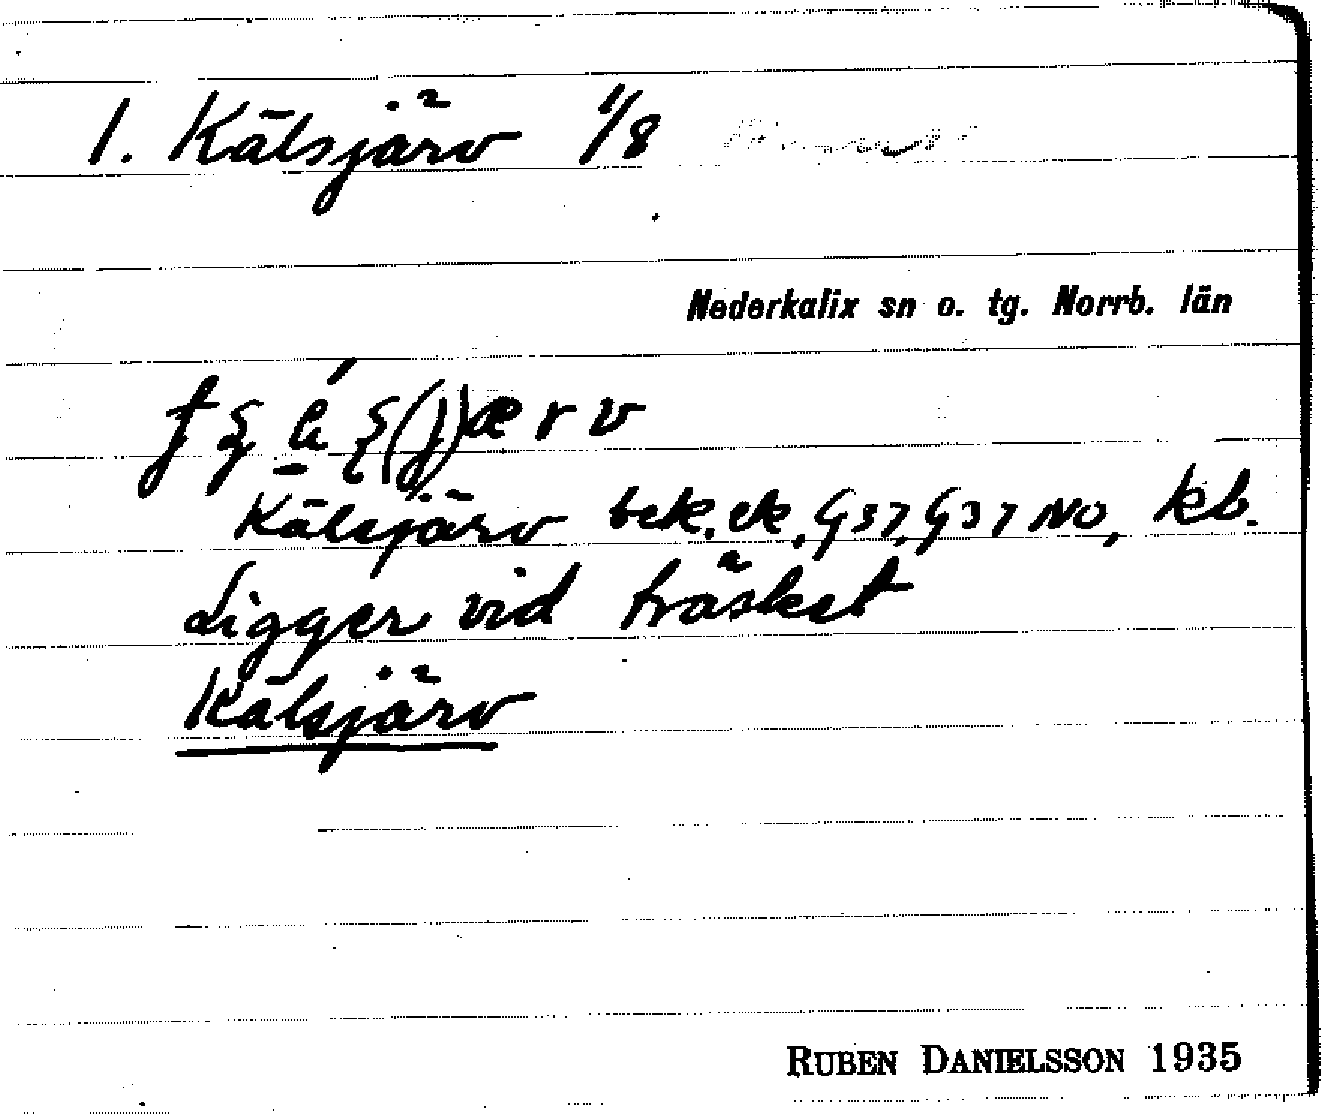 1. Kälsjärv 1/8
Nederkalix sn o. tg. Norrb. län
Kälsjärv bek. ek. G37, G37 NO, kb.
Ligger vid träsket
Kälsjärv
RUBEN DANIELSSON 1935